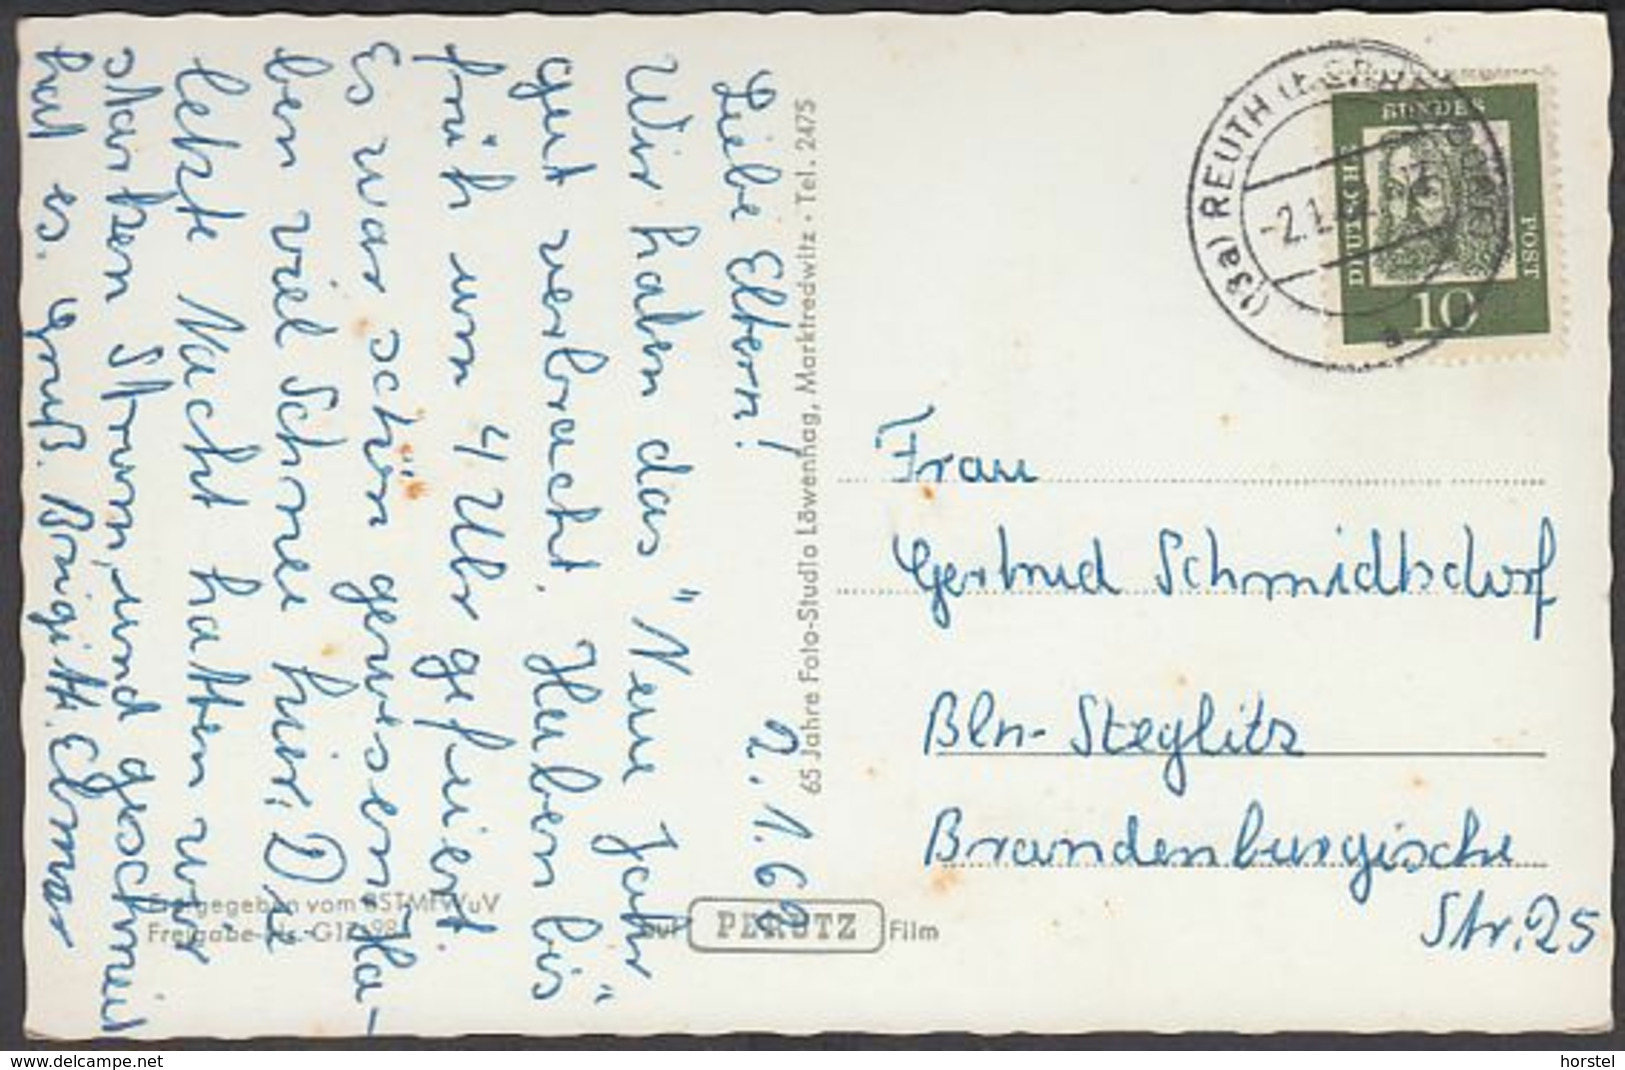 2.1.62
Liebe Eltern!
Wir haben das "Neue Jahr"
gut verbracht. Haben bis
früh um 4 Uhr gefeiert.
Es war schön gewesen. Ha-
ben viel Schnee hier. Die
letzte Nacht hatten wir
starken Sturm, und geschneit
hat es. Gruß. Brigitt.
65 Jahre Foto-Studio Löwenhag, Marktredwitz · Tel. 2475
Freigegeben vom BSTMfWuV
Freigabe-Nr. G
auf PERUTZ Film
(13a) REUTH
-2.1.
a
DEUTSCHE
BUNDES
POST
10
Frau
Gertrud Schmidtsdorf
Bln-Steglitz
Brandenburgische
Str. 25
www.delcampe.net
horstel